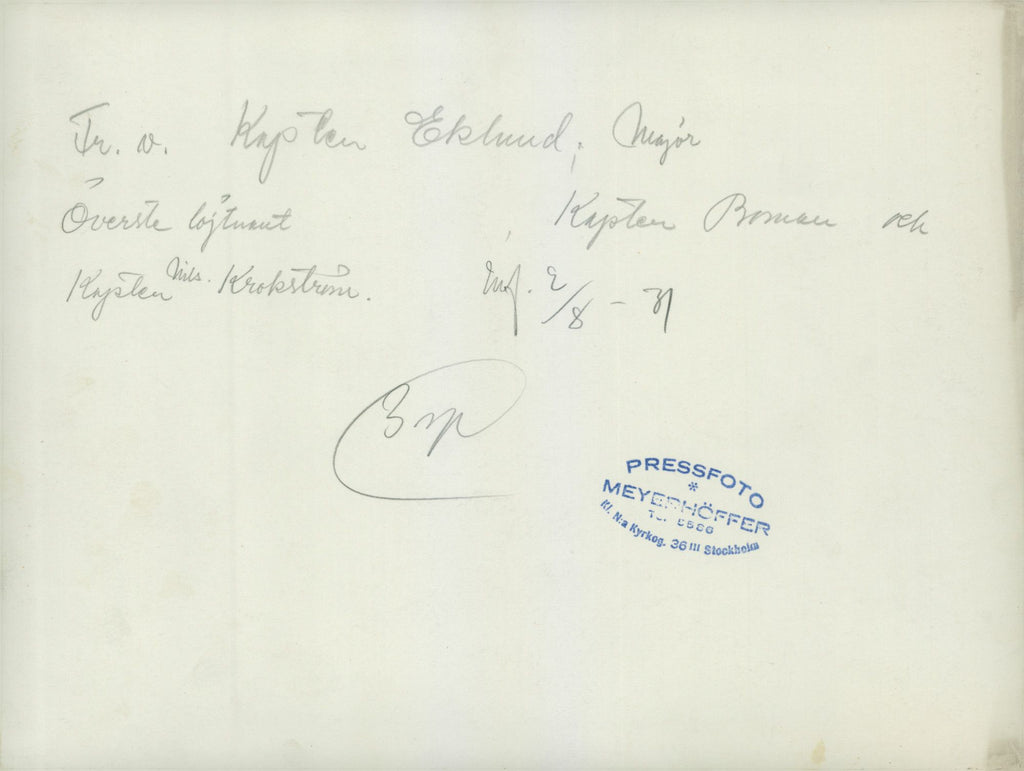 Fr. v. Kapten Eklund, Major
Överste löjtnant , Kapten Boman och
Kapten Nils. Krokström. 2/8 - 31
3 sp
PRESSFOTO
*
MEYERHÖFFER
Kl. N:a Kyrkog. 36 III Stockholm